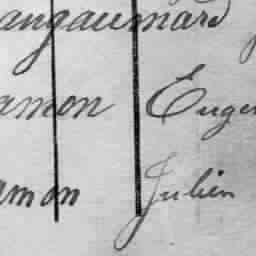 angaumard
amon Eugen
mon Julien